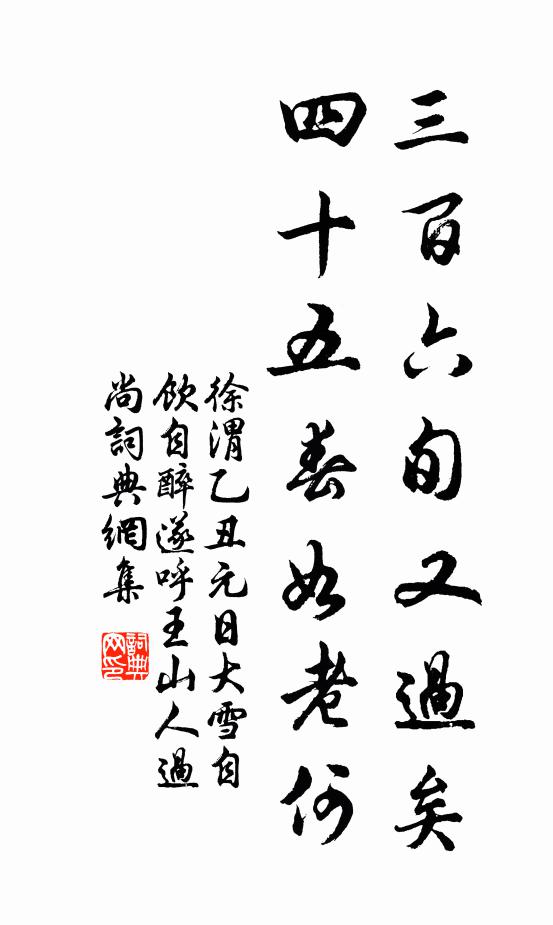 三百六旬又過矣
四十五春如老何
徐渭乙丑元日大雪自
飲自醉遂呼王山人過
尚詞典網集
詞典網印